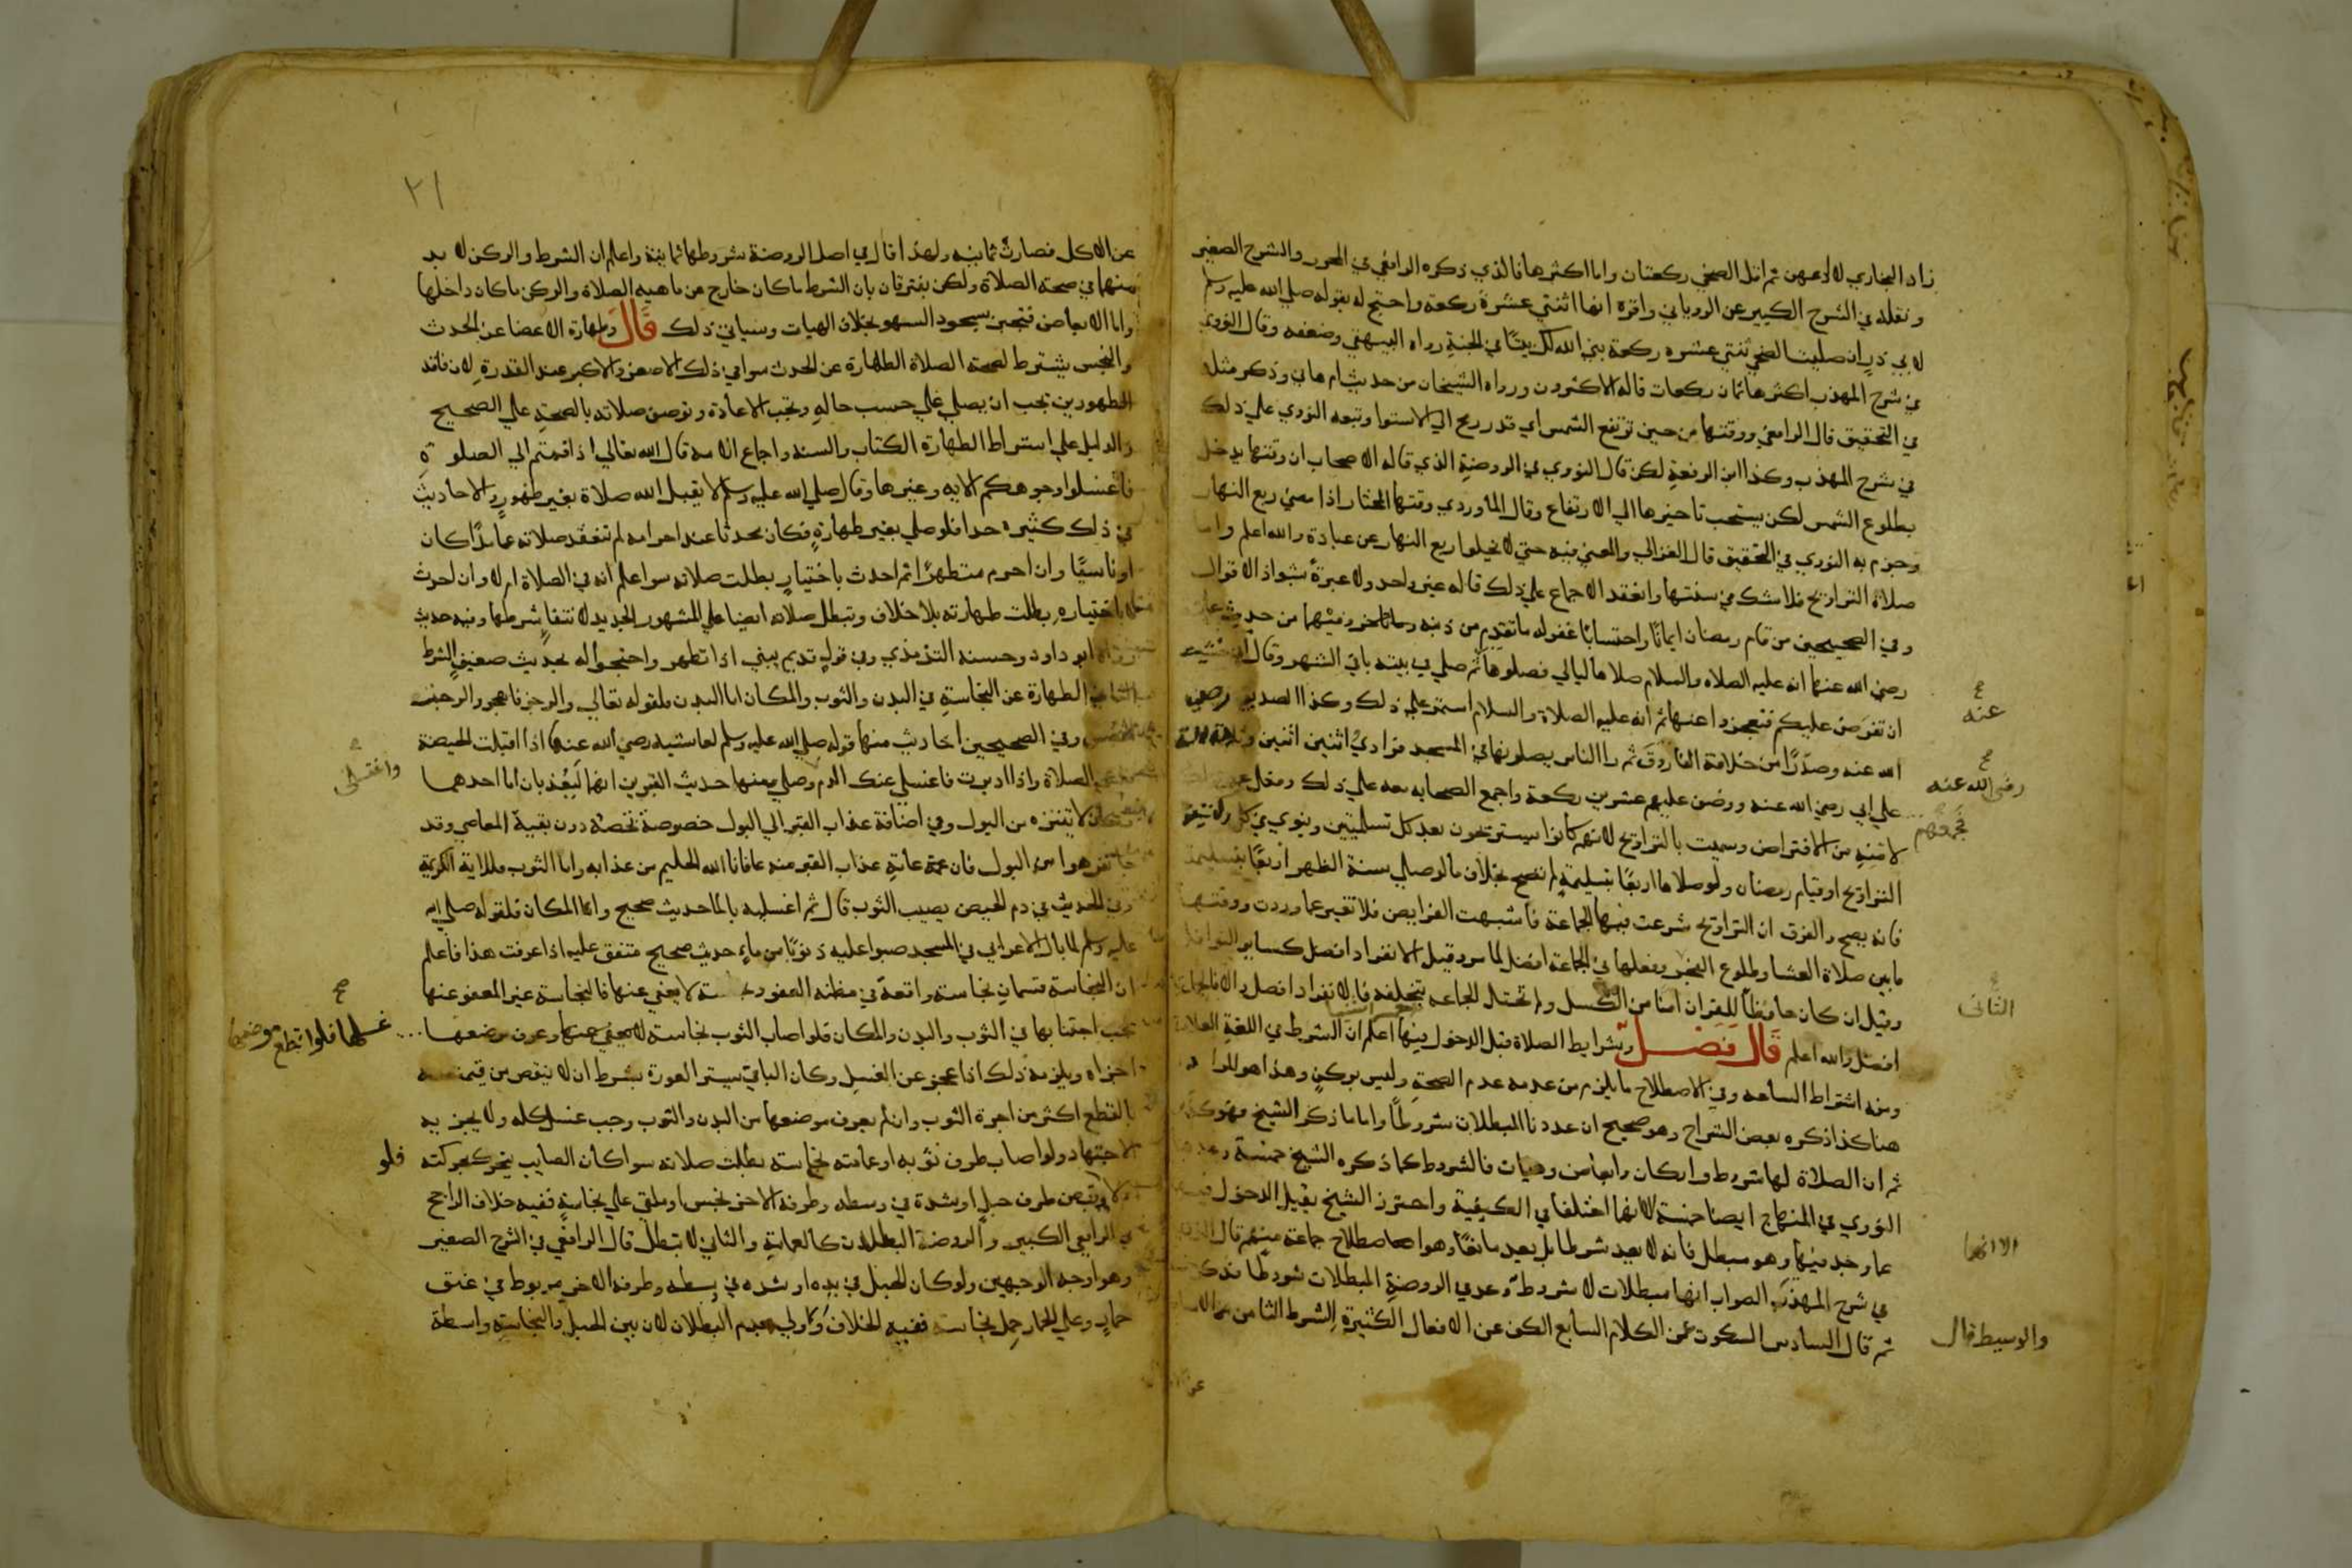 زاد البخاري لا ادعهن ثم اقل الضحي ركعتان واما اكثرها فالذي ذكره الرافعي في المحرر والشرح الصغير
ونقله في الشرح الكبير عن الروياني واقره انها اثنتي عشرة ركعة واحتج له بقوله صلي الله عليه وسلم
لابي ذر ان صليت الضحي ثنتي عشره ركعة بني الله لك بيتًا في الجنة رواه البيهقي وضعفه وقال النووي
في شرح المهذب اكثرها ثمان ركعات قاله الاكثرون ورواه الشيخان من حديث ام هاني وذكر مثله
في التحقيق قال الرافعي ووقتها من حين ترتفع الشمس اي قدر رمح الي الاستوا وتبعه النووي علي ذلك
في شرح المهذب وكذا ابن الرفعة لكن قال النووي في الروضة الذي قاله الاصحاب ان وقتها يدخل
بطلوع الشمس لكن يستحب تاخيرها الي الارتفاع وقال الماوردي وقتها المختار اذا مضي ربع النهار
وجزم به النووي في التحقيق قال الغزالي والمعني فيه حتي لا يخلوا ربع النهار عن عبادة والله اعلم واما
صلاة التراويح فلا شك في سنتها وانعقد الاجماع علي ذلك قاله غير واحد ولا عبرة بشواذ الاقوال
وفي الصحيحين من قام رمضان ايمانًا واحتسابًا غفر له ما تقدم من ذنبه وفيهما من حديث
رضي الله عنها انه عليه الصلاه والسلام صلاها ليالي فصلوها ثم صلي في بيته باقي الشهر وقال اني خشيت
ان تفرض عليكم فتعجزوا عنها ثم انه عليه الصلاة والسلام استمر علي ذلك وكذا الصديق رضي
الله عنه وصدرًا من خلافة الفاروق ثم راا الناس يصلونها في المسجد فرادي اثنين اثنين وثلاثة ثلاثة
علي ابي رضي الله عنه ووضف عليهم عشرين ركعة واجمع الصحابه معه علي ذلك
لامنه من الافتراض وسميت بالتراويح لانهم كانوا يستريحون بعد كل تسليمتين وينوي في كل ركعتين
التراويح او قيام رمضان ولو صلاها اربعًا بتسليمة لم تصح بخلاف ما لو صلي سنة الظهر اربعًا بتسليمة
فانه يصح والفرق ان التراويح شرعت فيها الجماعة فاشبهت الفرايض فلا تغير عما وردت ووقتها
ما بين صلاة العشا وطلوع الفجر وفعلها في الجماعة افضل لما مر وقيل الانفراد افضل كساير النوافل
وقيل ان كان حافظًا للقران امنا من الكسل ولم تختل الجماعه بتخلفه فالانفراد افضل والا فالجماعة
افضل والله اعلم قال فصل وشرايط الصلاة قبل الدخول فيها اعلم ان الشرط في اللغة العلامة
ومنه اشتراط الساعه وفي الاصطلاح ما يلزم من عدمه عدم الصحة وليس بركن وهذا هو المراد
هنا كذا ذكره بعض الشراح وهو صحيح ان عددنا المبطلات شروطًا واما ما ذكر الشيخ فهو
ثم ان الصلاة لها شروط واركان وابعاض وهيات فالشروط كما ذكره الشيخ خمسة
النووي في المنهاج ايضا خمسة لانهما اختلفا في الكيفية واحترز الشيخ بقبل الدخول
عما وجد فيها وهو مبطل فانه لا يعد شرطا بل يعد مانعًا وهو اصطلاح جماعة منهم قال
في شرح المهذب الصواب انها مبطلات لا شروط وعد في الروضة المبطلات شروطا
ثم قال السادس السكوت عن الكلام السابع الكف عن الافعال الكثيرة الشرط الثامن
عنه
رضي الله عنه
فجمعهم
الثاني
الا انهما
والوسيط قال
٢١
عن الاكل فصارت ثمانيه ولهذا قال في اصل الروضة شروطها ثمانية واعلم ان الشرط والركن لا بد
منهما في صحة الصلاة ولكن يفترقان بان الشرط ما كان خارج عن ماهيه الصلاة والركن ما كان داخلها
واما الابعاض فتجبر بسجود السهو بخلاف الهيات وسياتي ذلك قال وطهارة الاعضا عن الحدث
والنجس يشترط لصحة الصلاة الطهارة عن الحدث سوا في ذلك الاصغر والاكبر عند القدرة لان فاقد
الطهورين يجب ان يصلي علي حسب حاله وتجب الاعادة وتوصف صلاته بالصحة علي الصحيح
والدليل علي اشتراط الطهارة الكتاب والسنه واجماع الامه قال الله تعالي اذا قمتم الي الصلوة
فاغسلوا وجوهكم الايه وغيرها وقال صلي الله عليه وسلم لا يقبل الله صلاة بغير طهور والاحاديث
في ذلك كثيره جدا فلو صلي بغير طهارة فكان محدثا عند احرامه لم تنعقد صلاته عامدًا كان
او ناسيًا وان احرم متطهرًا ثم احدث باختيار بطلت صلاته سوا علم انه في الصلاة ام لا وان احدث
اختياره بطلت طهارته بلا خلاف وتبطل صلاته ايضا علي المشهور الجديد لانتفا شرطها وفيه حديث
رواه ابو داود وحسنه الترمذي وفي قول قديم يبني اذا تطهر واحتجوا له بحديث ضعيف الشرط
الثاني الطهارة عن النجاسة في البدن والثوب والمكان اما البدن فلقوله تعالي والرجز فاهجر والرجز
وفي الصحيحين احاديث منها قوله صلي الله عليه وسلم لعائشه رضي الله عنها اذا اقبلت الحيضة
الصلاة واذا ادبرت فاغسلي عنك الدم وصلي ومنها حديث القبرين انهما ليعذبان اما احدهما
فكان لا يتنزه من البول وفي اضافة عذاب القبر الي البول خصوصة تخصه دون بقية المعاصي وقد
تنزهوا من البول فان عامة عذاب القبر منه عافانا الله الحليم من عذابه واما الثوب فللاية الكريمة
وفي الحديث في دم الحيض يصيب الثوب قال ثم اغسليه بالما حديث صحيح واما المكان فلقوله صلي الله
عليه وسلم لما بال الاعرابي في المسجد صبوا عليه ذنوبًا من ماء حديث صحيح متفق عليه اذا عرفت هذا فاعلم
ان النجاسة قسمان نجاسة واقعة في مظنه العفو ونجاسة لا يعفي عنها فالنجاسة غير المعفو عنها
يجب اجتنابها في الثوب والبدن والمكان فلو اصاب الثوب نجاسة لا يعفي عنها وعرف موضعها
اجزاه ويلزمه ذلك اذا عجز عن الغسل وكان الباقي يستر العورة بشرط ان لا ينقص من قيمته
بالقطع اكثر من اجرة الثوب وان لم يعرف موضعها من البدن والثوب وجب غسل كله ولا يجزيه
الاجتهاد ولو اصاب طرف ثوبه او عمامته نجاسة بطلت صلاته سوا كان الصايب يتحرك بحركته
قبض طرف حبل او شده في وسطه وطرفه الاخر نجس او ملقي علي نجاسة ففيه خلاف الراجح
في الرافعي الكبير والروضة البطلان كالعمامة والثاني لا تبطل قال الرافعي في الشرح الصغير
وهو اوجه الوجهين ولو كان الحبل في يده او شده في وسطه وطرفه الاخر مربوط في عنق
حمار وعلي الحمار حمل نجاسة ففيه الخلاف واولي بعدم البطلان لان بين الحبل والنجاسة واسطة
واغتسلي
غسلها فلو قطع موضعها
فلو